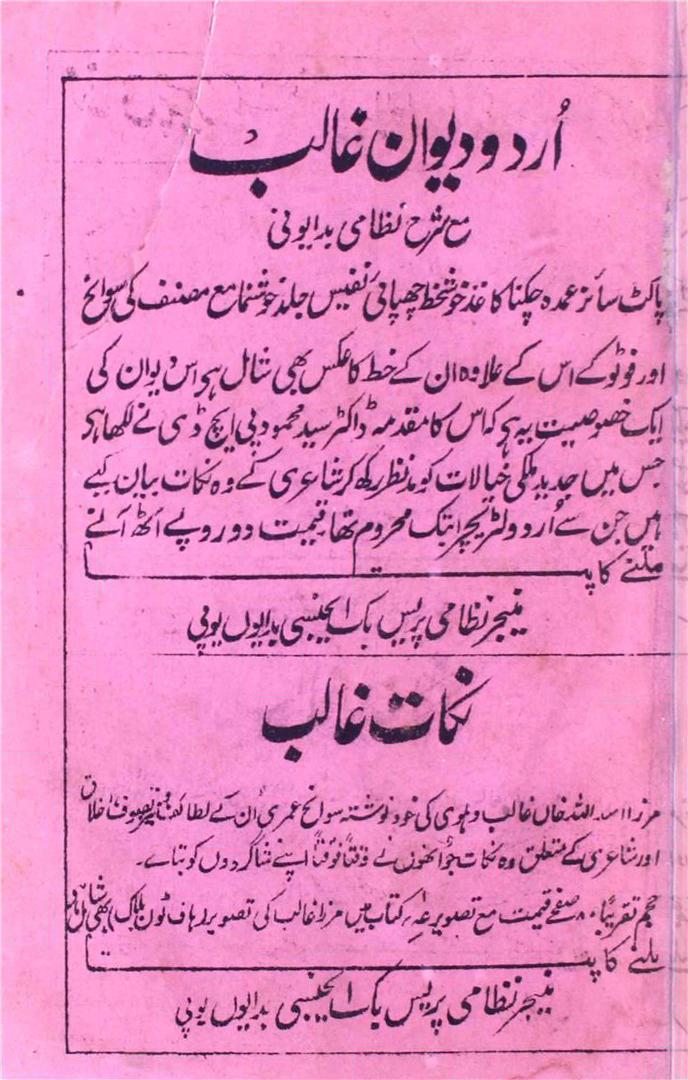 اُردو دیوان غالب
مع شرح نظامی بدایونی
پاکٹ سائز عمدہ چکنا کاغذ خوشخط چھپائی نفیس جلد خوشنما مع مصنف کی سوانح
اور فوٹو کے اس کے علاوہ ان کے خط کا عکس بھی شامل ہو اس دیوان کی
ایک خصوصیت یہ ہو کہ اس کا مقدمہ ڈاکٹر سید محمود پی ایچ ڈی نے لکھا ہو
جس میں جدید ملکی خیالات کو مدنظر رکھ کر شاعری کے وہ نکات بیان کیے
ہیں جن سے اُردو لٹریچر ابتک محروم تھا قیمت دو روپے آٹھ آنے
ملنے کا پتا
منیجر نظامی پریس بک ایجنسی بدایوں یوپی
نکات غالب
مرزا اسد اللہ خاں غالب دہلوی کی خود نوشتہ سوانح عمری ان کے لطائف تصوف اخلاق
اور شاعری کے متعلق وہ نکات جو انھوں نے وقتاً فوقتاً اپنے شاگردوں کو بتائے۔
حجم تقریباً ۸۰ صفحے قیمت مع تصویر کتاب میں مرزا غالب کی تصویر (ہاف ٹون بلاک) بھی شامل
ملنے کا پتا
منیجر نظامی پریس بک ایجنسی بدایوں یوپی